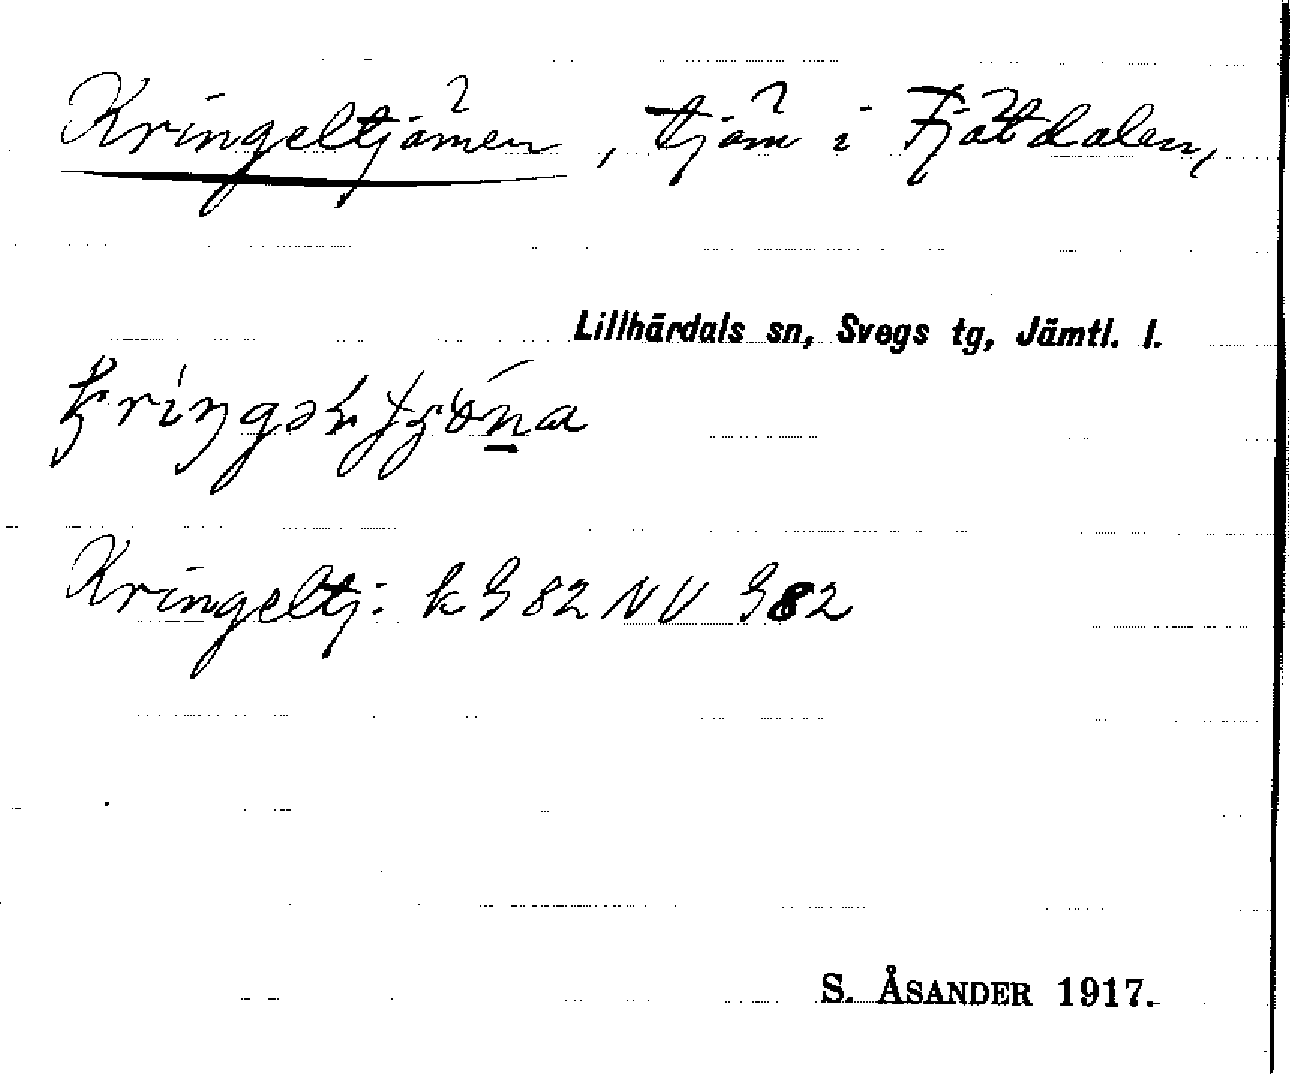 Kringeltjärnen, tjärn i Fjätdalen,
Lillhärdals sn, Svegs tg, Jämtl. l.
Kringeltj: k G 82 NV G 82
S. ÅSANDER 1917.